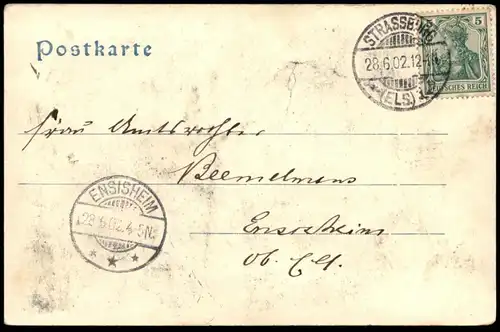 Postkarte
STRASSBURG
28.6.02.12-1N.
(ELS.)
5
DEUTSCHES REICH
Frau Amtsrichter
Beemelmans
Ensisheim
Ob. Els.
ENSISHEIM
28.6.02.4-5N.